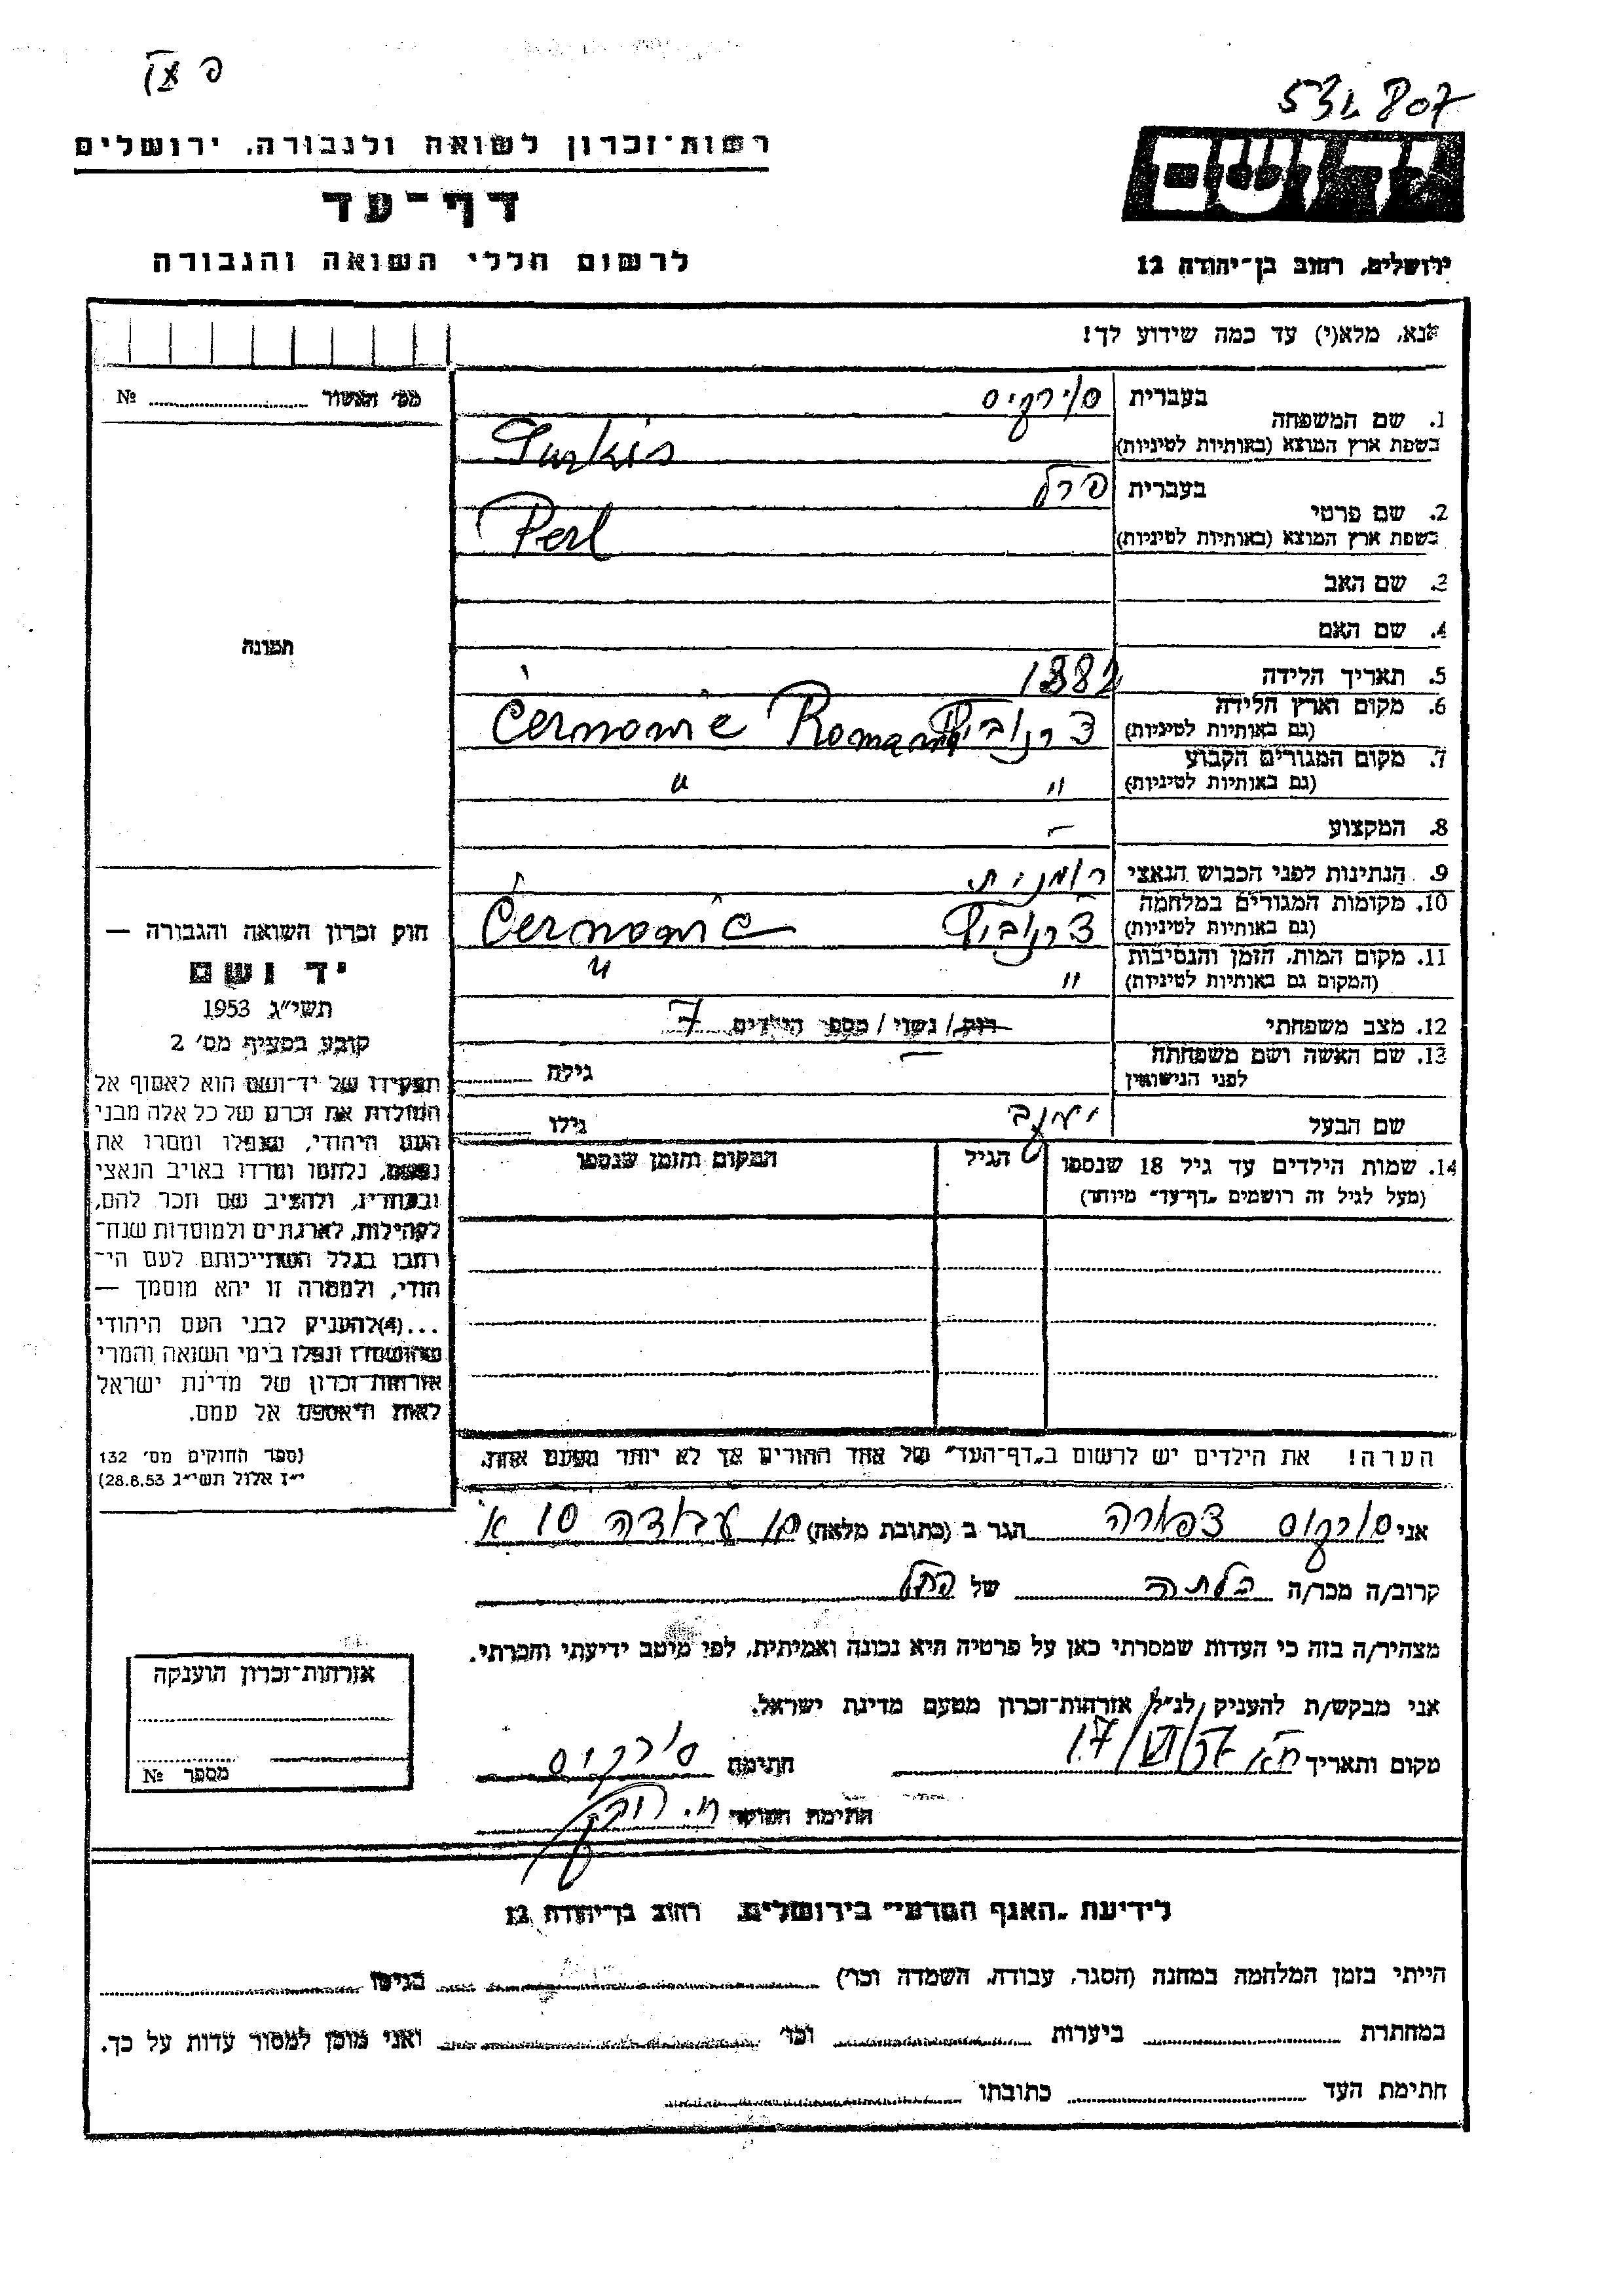 531807
רשות־זכרון לשואה ולגבורה, ירושלים
דף־עד
לרשום חללי השואה והגבורה
יד ושם
ירושלים, רחוב בן־יהודה 12
אנא, מלא(י) עד כמה שידוע לך!
מס׳ האשור ........ №
1. שם המשפחה
בעברית סירקיס
בשפת ארץ המוצא (באותיות לטיניות) Surkis
2. שם פרטי
בעברית פרל
בשפת ארץ המוצא (באותיות לטיניות) Perl
3. שם האב
4. שם האם
5. תאריך הלידה 1882
6. מקום וארץ הלידה
(גם באותיות לטיניות) צרנוביץ Černovic
7. מקום המגורים הקבוע
(גם באותיות לטיניות) " "
8. המקצוע –
9. הנתינות לפני הכבוש הנאצי רומנית
10. מקומות המגורים במלחמה
(גם באותיות לטיניות) צרנוביץ Černovic
11. מקום המות, הזמן והנסיבות
(המקום גם באותיות לטיניות) " "
12. מצב משפחתי רוק/נשוי/מספר הילדים 7
13. שם האשה ושם משפחתה
לפני הנישואין – גילה
שם הבעל יעקב גילו
14. שמות הילדים עד גיל 18 שנספו הגיל המקום והזמן שנספו
(מעל לגיל זה רושמים „דף־עד" מיוחד)
הערה! את הילדים יש לרשום ב„דף־העד" של אחד ההורים אך לא יותר מפעם אחת.
תמונה
חוק זכרון השואה והגבורה —
יד ושם
תשי״ג 1953
קובע בסעיף מס׳ 2
תפקידו של יד־ושם הוא לאסוף אל
המולדת את זכרם של כל אלה מבני
העם היהודי, שנפלו ומסרו את
נפשם, נלחמו ומרדו באויב הנאצי
ובעוזריו, ולהציב שם וזכר להם,
לקהילות, לארגונים ולמוסדות שנח־
רבו בגלל השתייכותם לעם הי־
הודי, ולמטרה זו יהא מוסמך —
...(4) להעניק לבני העם היהודי
שהושמדו ונפלו בימי השואה והמרי
אזרחות־זכרון של מדינת ישראל
לאות היאספם אל עמם.
(ספר החוקים מס׳ 132
י״ז אלול תשי״ג 28.8.53)
אני סירקיס צפורה הגר ב (כתובת מלאה) עבודה 10 א
קרוב/ה מכר/ה כלתה של פרל
מצהיר/ה בזה כי העדות שמסרתי כאן על פרטיה היא נכונה ואמיתית, לפי מיטב ידיעתי והכרתי.
אני מבקש/ת להעניק לנ״ל אזרחות־זכרון מטעם מדינת ישראל.
מקום ותאריך חתימה סירקיס
חתימת הפוקד
אזרחות־זכרון הוענקה
מספר №
לידיעת „האגף המדעי" בירושלים, רחוב בן־יהודה 12
הייתי בזמן המלחמה במחנה (הסגר, עבודה, השמדה וכו׳) ........ בגיטו ........
במחתרת ........ ביערות ........ וכו׳ ........ ואני מוכן למסור עדות על כך.
חתימת העד ........ כתובתו ........